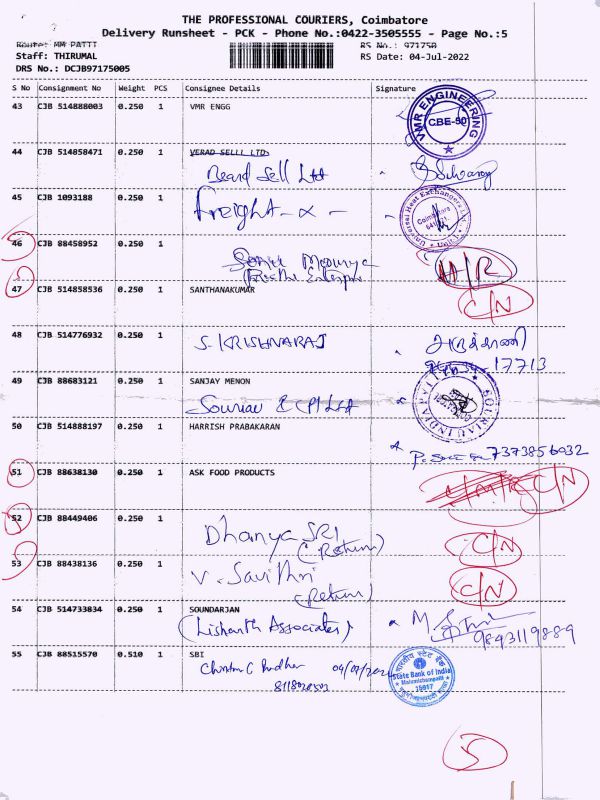 THE PROFESSIONAL COURIERS, Coimbatore
Delivery Runsheet - PCK - Phone No.:0422-3505555 - Page No.:5
Route: MM PATTI RS No.: 971750
Staff: THIRUMAL RS Date: 04-Jul-2022
DRS No.: DCJB97175005
S No Consignment No Weight PCS Consignee Details Signature
43 CJB 514888003 0.250 1 VMR ENGG
VMR ENGINEERING
CBE-50
44 CJB 514858471 0.250 1 VERAD SELLL LTD
Beard Sell Ltd
45 CJB 1093188 0.250 1
freight - x -
Universal Heat Exchangers
Coimbatore
Unit
46 CJB 88458952 0.250 1
H/R
47 CJB 514858536 0.250 1 SANTHANAKUMAR
C/N
48 CJB 514776932 0.250 1
S. KRISHNARAJ
17713
49 CJB 88683121 0.250 1 SANJAY MENON
Souriau I (P) Ltd
SOURIAU INDIA
50 CJB 514888197 0.250 1 HARRISH PRABAKARAN
7373856032
51 CJB 88638130 0.250 1 ASK FOOD PRODUCTS
C/N
52 CJB 88449406 0.250 1
Dhanya SRI
(Return)
C/N
53 CJB 88438136 0.250 1
V. Savithri
(Return)
C/N
54 CJB 514733834 0.250 1 SOUNDARJAN
(Lishanth Associates)
9843119889
55 CJB 88515570 0.510 1 SBI
भारतीय स्टेट बैंक
State Bank of India
15017
5